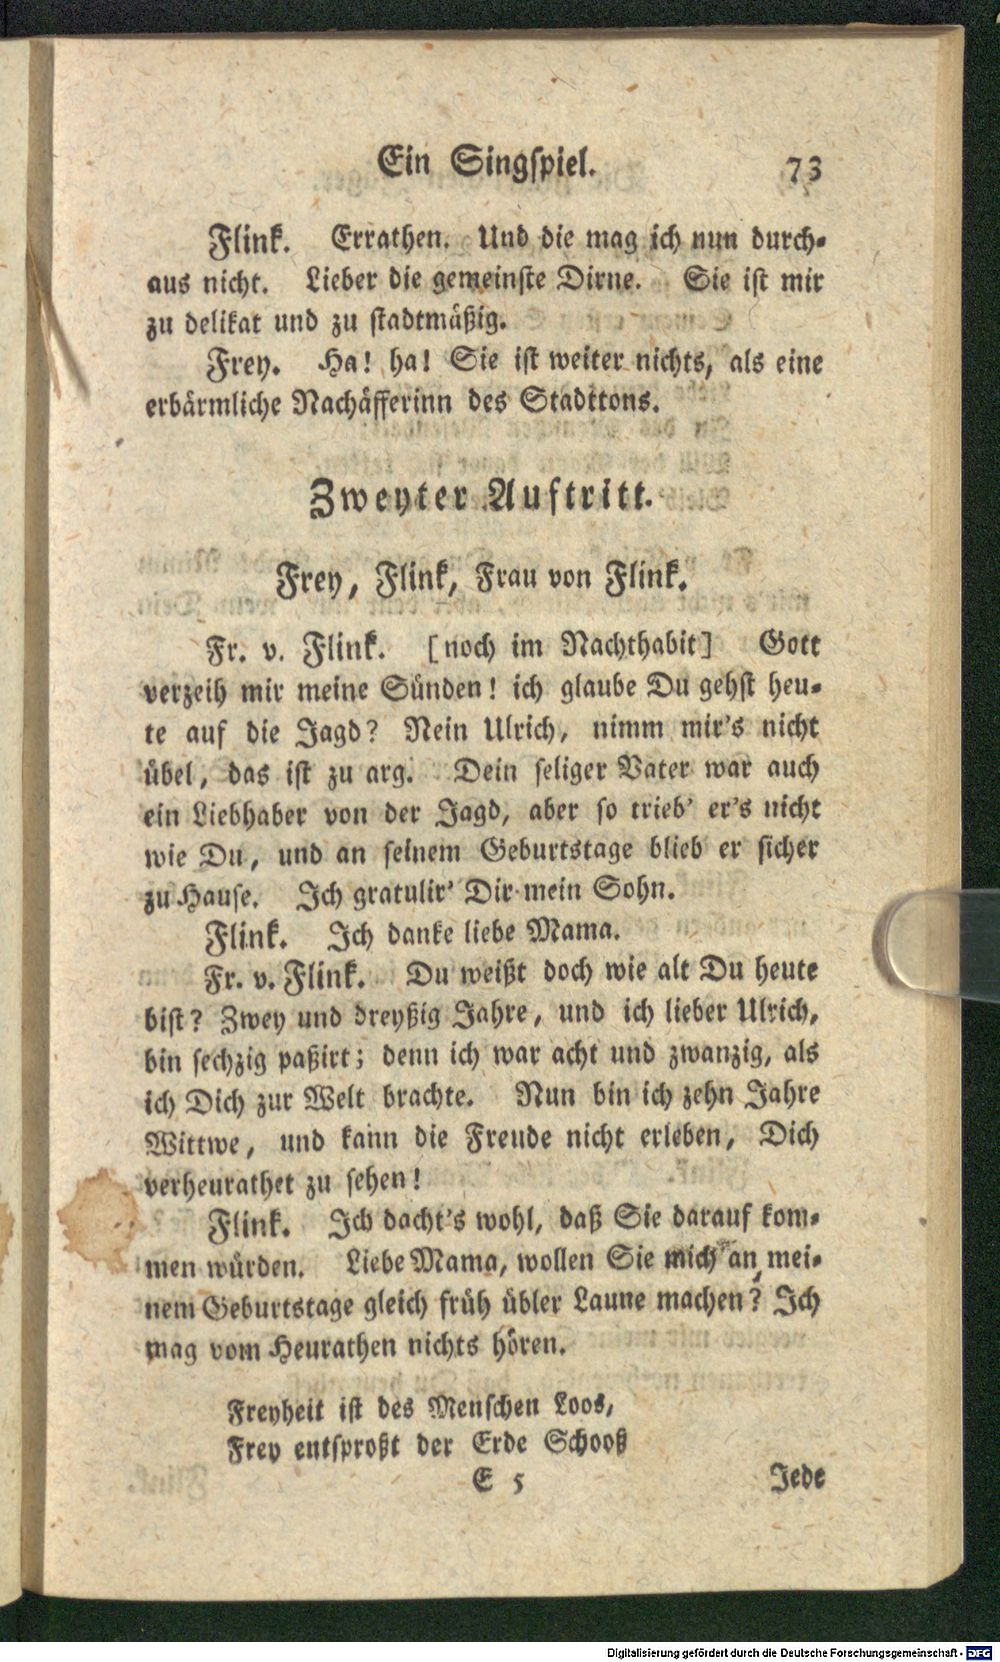 Ein Singspiel. 73
Flink. Errathen. Und die mag ich nun durch-
aus nicht. Lieber die gemeinste Dirne. Sie ist mir
zu delikat und zu stadtmäßig.
Frey. Ha! ha! Sie ist weiter nichts, als eine
erbärmliche Nachäfferinn des Stadttons.
Zweyter Auftritt.
Frey, Flink, Frau von Flink.
Fr. v. Flink. [noch im Nachthabit] Gott
verzeih mir meine Sünden! ich glaube Du gehst heu-
te auf die Jagd? Nein Ulrich, nimm mir's nicht
übel, das ist zu arg. Dein seliger Vater war auch
ein Liebhaber von der Jagd, aber so trieb' er's nicht
wie Du, und an seinem Geburtstage blieb er sicher
zu Hause. Ich gratulir' Dir mein Sohn.
Flink. Ich danke liebe Mama.
Fr. v. Flink. Du weißt doch wie alt Du heute
bist? Zwey und dreyßig Jahre, und ich lieber Ulrich,
bin sechzig paßirt; denn ich war acht und zwanzig, als
ich Dich zur Welt brachte. Nun bin ich zehn Jahre
Wittwe, und kann die Freude nicht erleben, Dich
verheurathet zu sehen!
Flink. Ich dacht's wohl, daß Sie darauf kom-
men würden. Liebe Mama, wollen Sie mich an mei-
nem Geburtstage gleich früh übler Laune machen? Ich
mag vom Heurathen nichts hören.
Freyheit ist des Menschen Loos,
Frey entsproßt der Erde Schooß
E 5 Jede
Digitalisierung gefördert durch die Deutsche Forschungsgemeinschaft - DFG